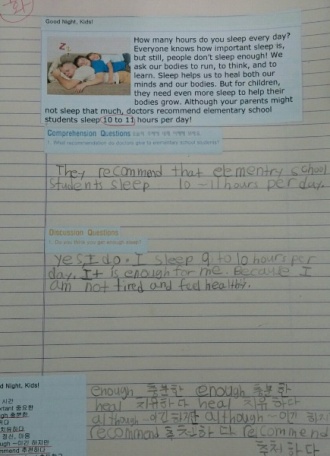 Good Night, Kids!
How many hours do you sleep every day?
Everyone knows how important sleep is,
but still, people don't sleep enough! We
ask our bodies to run, to think, and to
learn. Sleep helps us to heal both our
minds and our bodies. But for children,
they need even more sleep to help their
bodies grow. Although your parents might
not sleep that much, doctors recommend elementary school
students sleep 10 to 11 hours per day!
Comprehension Questions
1. What recommendation do doctors give to elementary school students?
They recommend that elementry school
students sleep 10 - 11 hours per day.
Discussion Questions
1. Do you think you get enough sleep?
yes I do. I sleep 9 to 10 hours per
day. It is enough for me. Because I
am not tired and feel healthy.
d Night, Kids!
시간
rtant 중요한
gh 충분한
치유하다
정신, 마음
ugh ~이긴 하지만
mmend 추천하다
enough 충분한 enough 충분한
heal 치유하다 heal 치유하다
although ~이긴 하지만 although ~이긴 하지
recommend 추천하다 recommend
추천하다